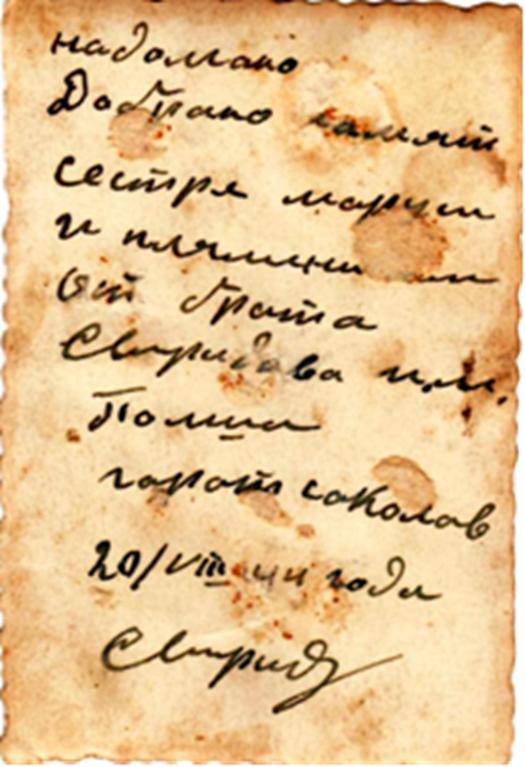 на долгаю
Добраю памят
сестре маруси
и племени
От брата
Свиридова и.и.
Помни
город соколов
20/VIII 44 года
Свирид